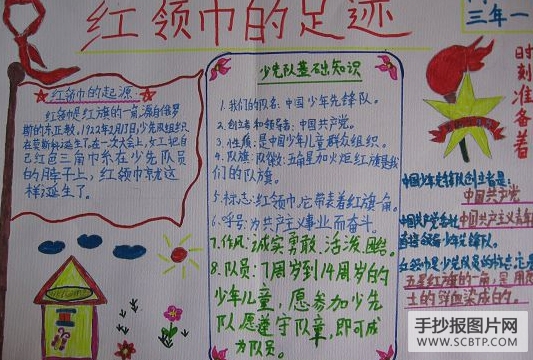 红领巾的足迹
三年一
红领巾的起源:
红领巾是红旗的一角,源自俄罗
斯的东正教,1922年2月1日,少先队组织
在莫斯科诞生了,在一次大会上,女工把自
己红色三角巾系在少先队员
的脖子上,红领巾就这
样诞生了。
少先队基础知识
1.我们的队名:中国少年先锋队。
2.创立者和领导者:中国共产党。
3.性质:是中国少年儿童群众组织。
4.队旗、队徽:五角星加火炬红旗是我
们的队旗。
5.标志:红领巾,它带表着红旗一角。
6.呼号:为共产主义事业而奋斗。
7.作风:诚实、勇敢、活泼、团结。
8.队员:7周岁到14周岁的
少年儿童,愿参加少先
队,愿遵守队章,即可成
为队员。
时刻准备着
中国少年先锋队创立者是:
中国共产党
中国共产党委托中国共产主义青年
直接领导少年先锋队。
红领巾是少先队员的标志,它是
五星红旗的一角,是用烈
士的鲜血染成的。
手抄报图片网
WWW.SCBTP.COM